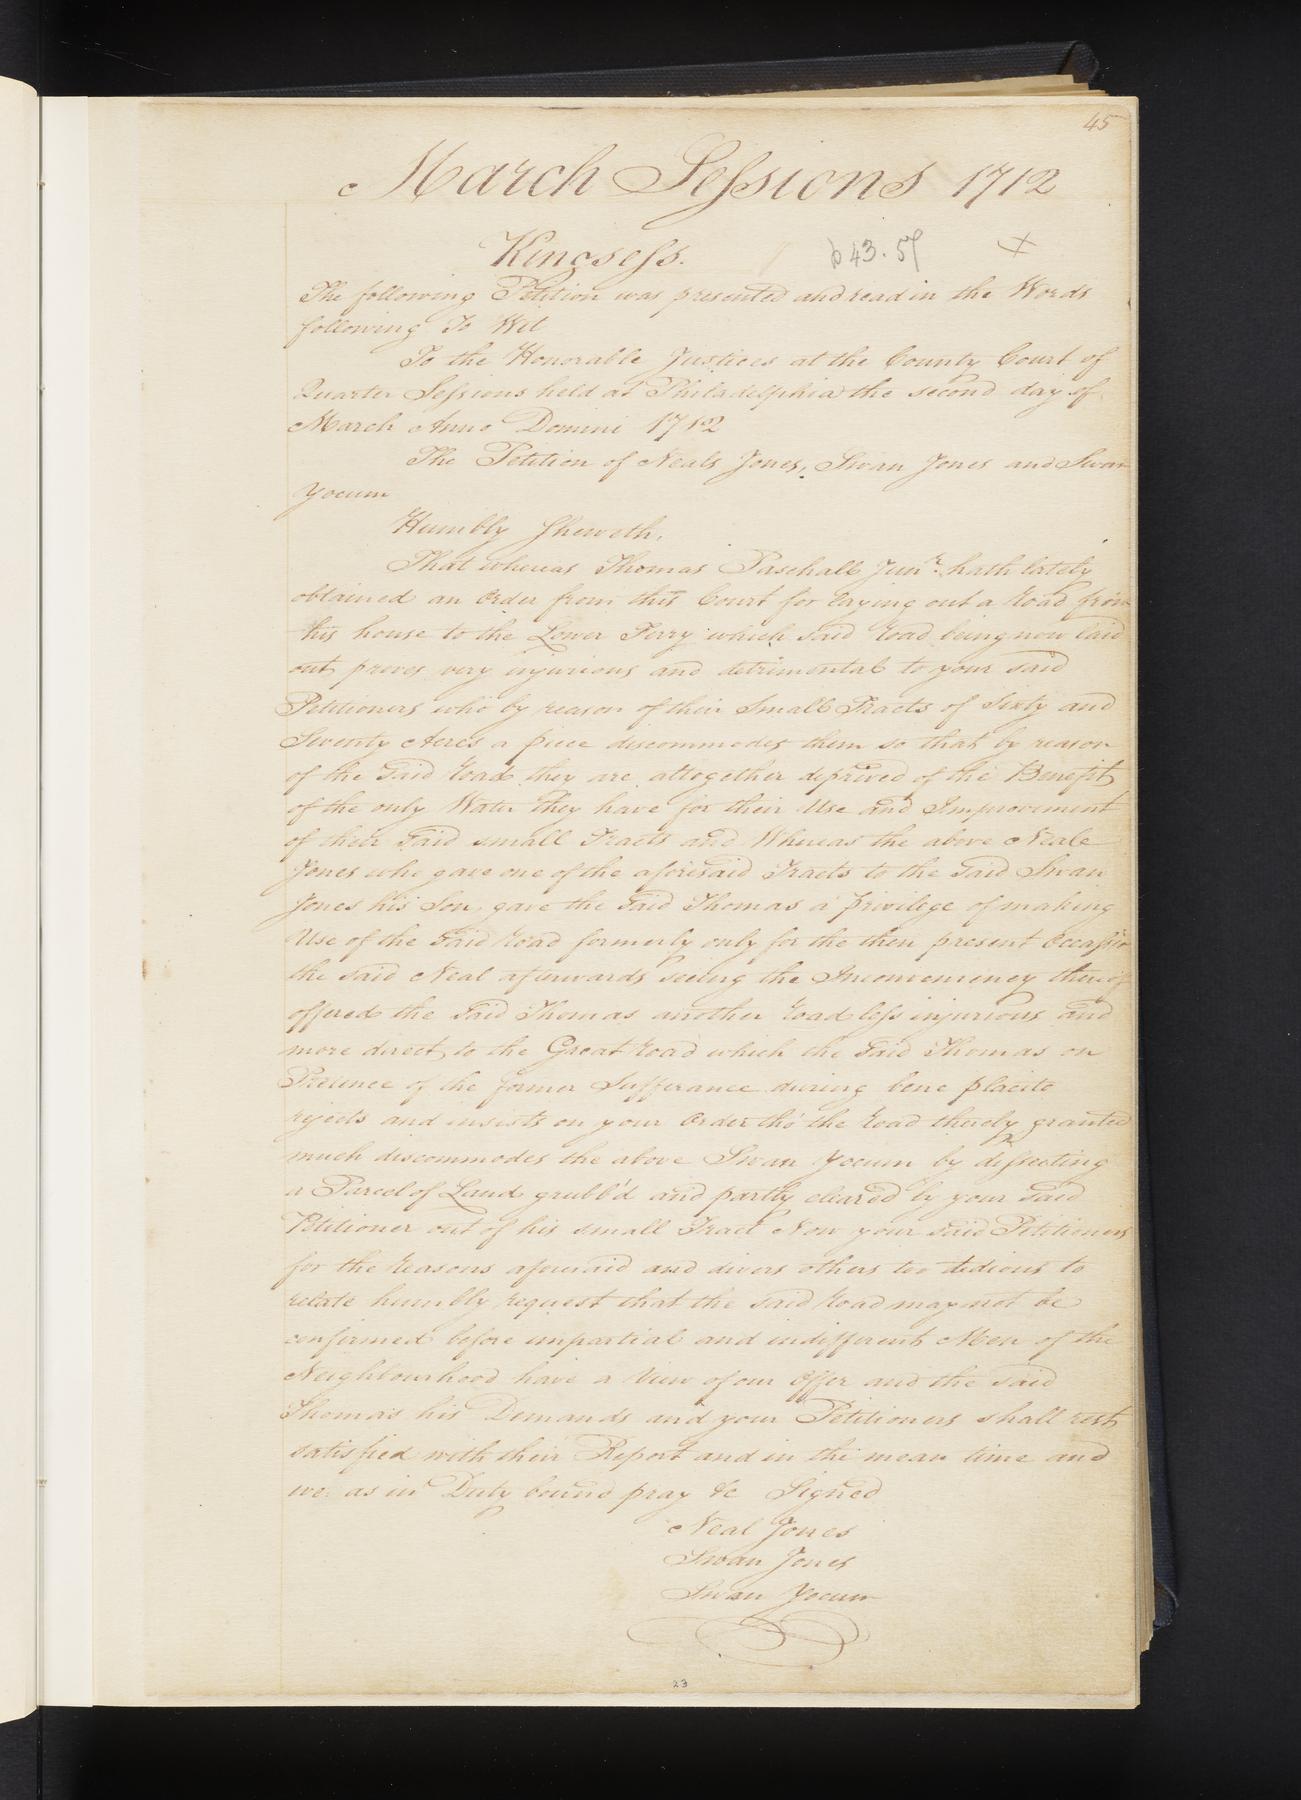 45
March Sessions 1712
Kingsess. p 43. 57 +
The following Petition was presented and read in the Words
following To Wit
To the Honorable Justices at the County Court of
Quarter Sessions held at Philadelphia the second day of
March Anno Domini 1712
The Petition of Neals Jones, Swan Jones and Swan
Yocum
Humbly Sheweth,
That whereas Thomas Paschall Junr. hath lately
obtained an Order from this Court for laying out a Road from
his house to the Lower Ferry which said Road being now laid
out proves very injurious and detrimental to your said
Petitioners who by reason of their Small Tracts of Sixty and
Seventy Acres a piece discommodes them so that by reason
of the Said Road they are altogether deprived of the Benefit
of the only Water they have for their Use and Improvement
of their Said small Tracts and Whereas the above Neale
Jones who gave one of the aforesaid Tracts to the Said Swan
Jones his Son, gave the Said Thomas a privilege of making
Use of the Said Road formerly only for the then present Occassion
the said Neal afterwards seeing the Inconveniency thereof
offered the Said Thomas another Road less injurious and
more direct to the Great Road which the Said Thomas on
Pretence of the former Sufferance during bene placito
rejects and insists on your Order tho' the Road thereby granted
much discommodes the above Swan Yocum by dissecting
a Parcel of Land grubb'd and partly cleared by your Said
Petitioner out of his small Tract Now your said Petitioners
for the Reasons aforesaid and divers others too tedious to
relate humbly request that the said Road may not be
confirmed before impartial and indifferent Men of the
Neighbourhood have a View of our Offer and the said
Thomas his Demands and your Petitioners shall rest
satisfied with their Report and in the mean time and
we as in Duty bound pray &c Signed
Neal Jones
Swan Jones
Swan Yocum
23